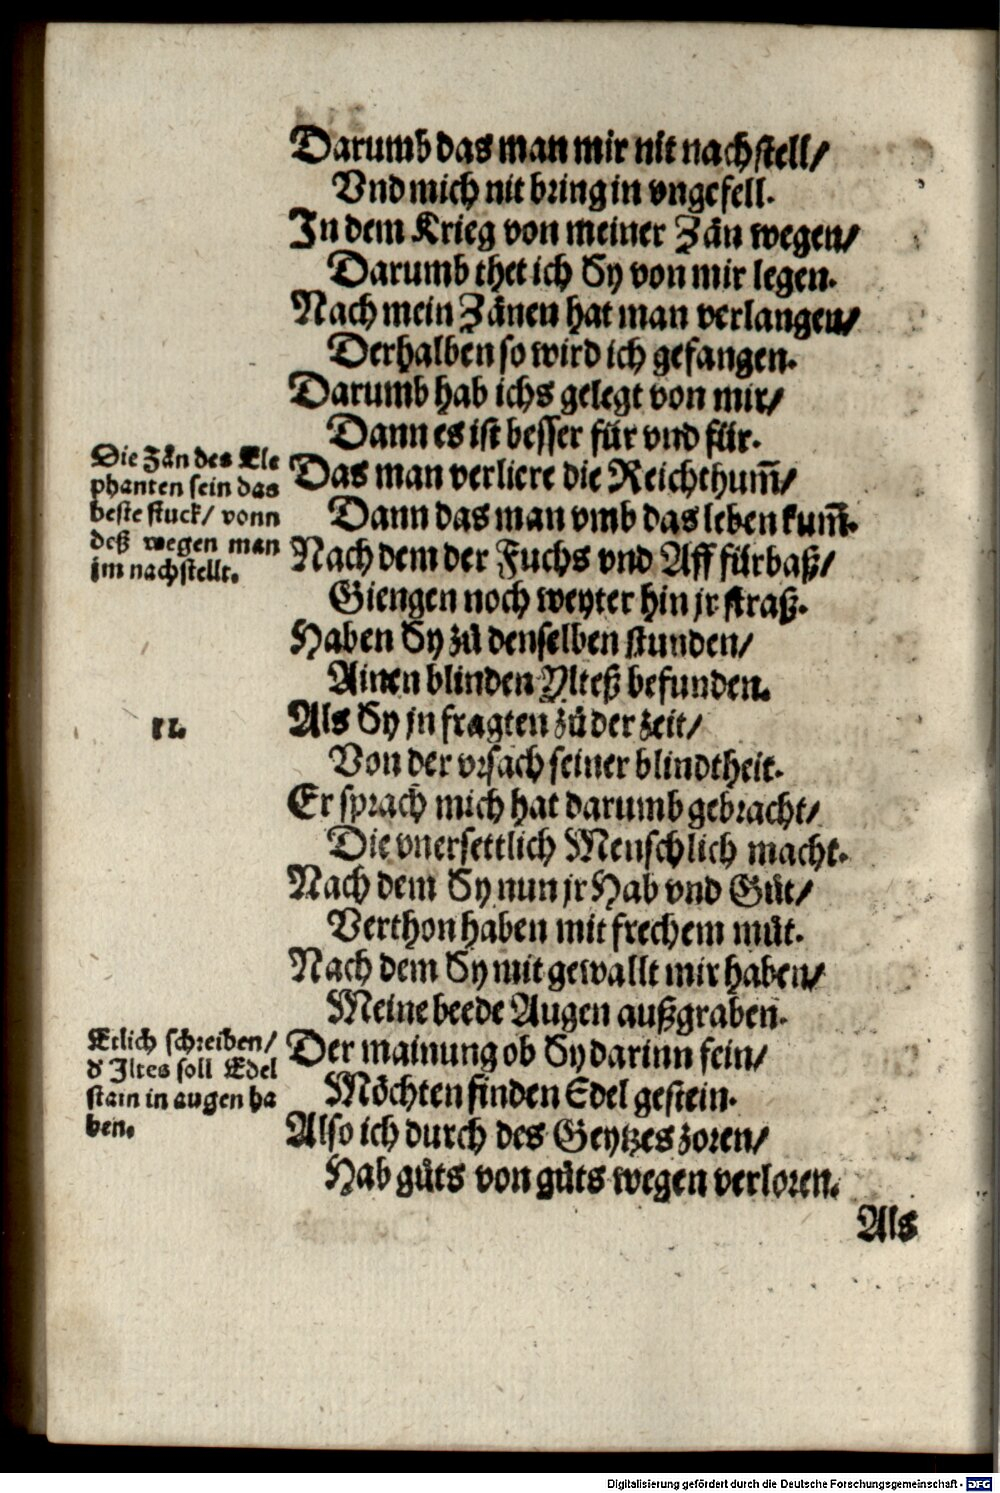 Darumb das man mir nit nachstell/
Vnd mich nit bring in vngefell.
In dem Krieg von meiner Zän wegen/
Darumb thet ich Sy von mir legen.
Nach mein Zänen hat man verlangen/
Derhalben so wird ich gefangen.
Darumb hab ichs gelegt von mir/
Dann es ist besser für vnd für.
Die Zän des Ele
phanten sein das
beste stuck/ vonn
deß wegen man
jm nachstellt.
Das man verliere die Reichthum̃/
Dann das man vmb das leben kum̃.
Nach dem der Fuchs vnd Aff fürbaß/
Giengen noch weyter hin jr straß.
Haben Sy zů denselben stunden/
Ainen blinden Ylteß befunden.
12.
Als Sy jn fragten zů der zeit/
Von der vrsach seiner blindtheit.
Er sprach mich hat darumb gebracht/
Die vnersettlich Menschlich macht.
Nach dem Sy nun jr Hab vnd Gůt/
Verthon haben mit frechem můt.
Nach dem Sy mit gewallt mir haben/
Meine beede Augen außgraben.
Etlich schreiben/
d' Iltes soll Edel
stain in augen ha
ben.
Der mainung ob Sy darinn fein/
Möchten finden Edel gestein.
Also ich durch des Geytzes zoren/
Hab gůts von gůts wegen verloren.
Als
Digitalisierung gefördert durch die Deutsche Forschungsgemeinschaft - DFG